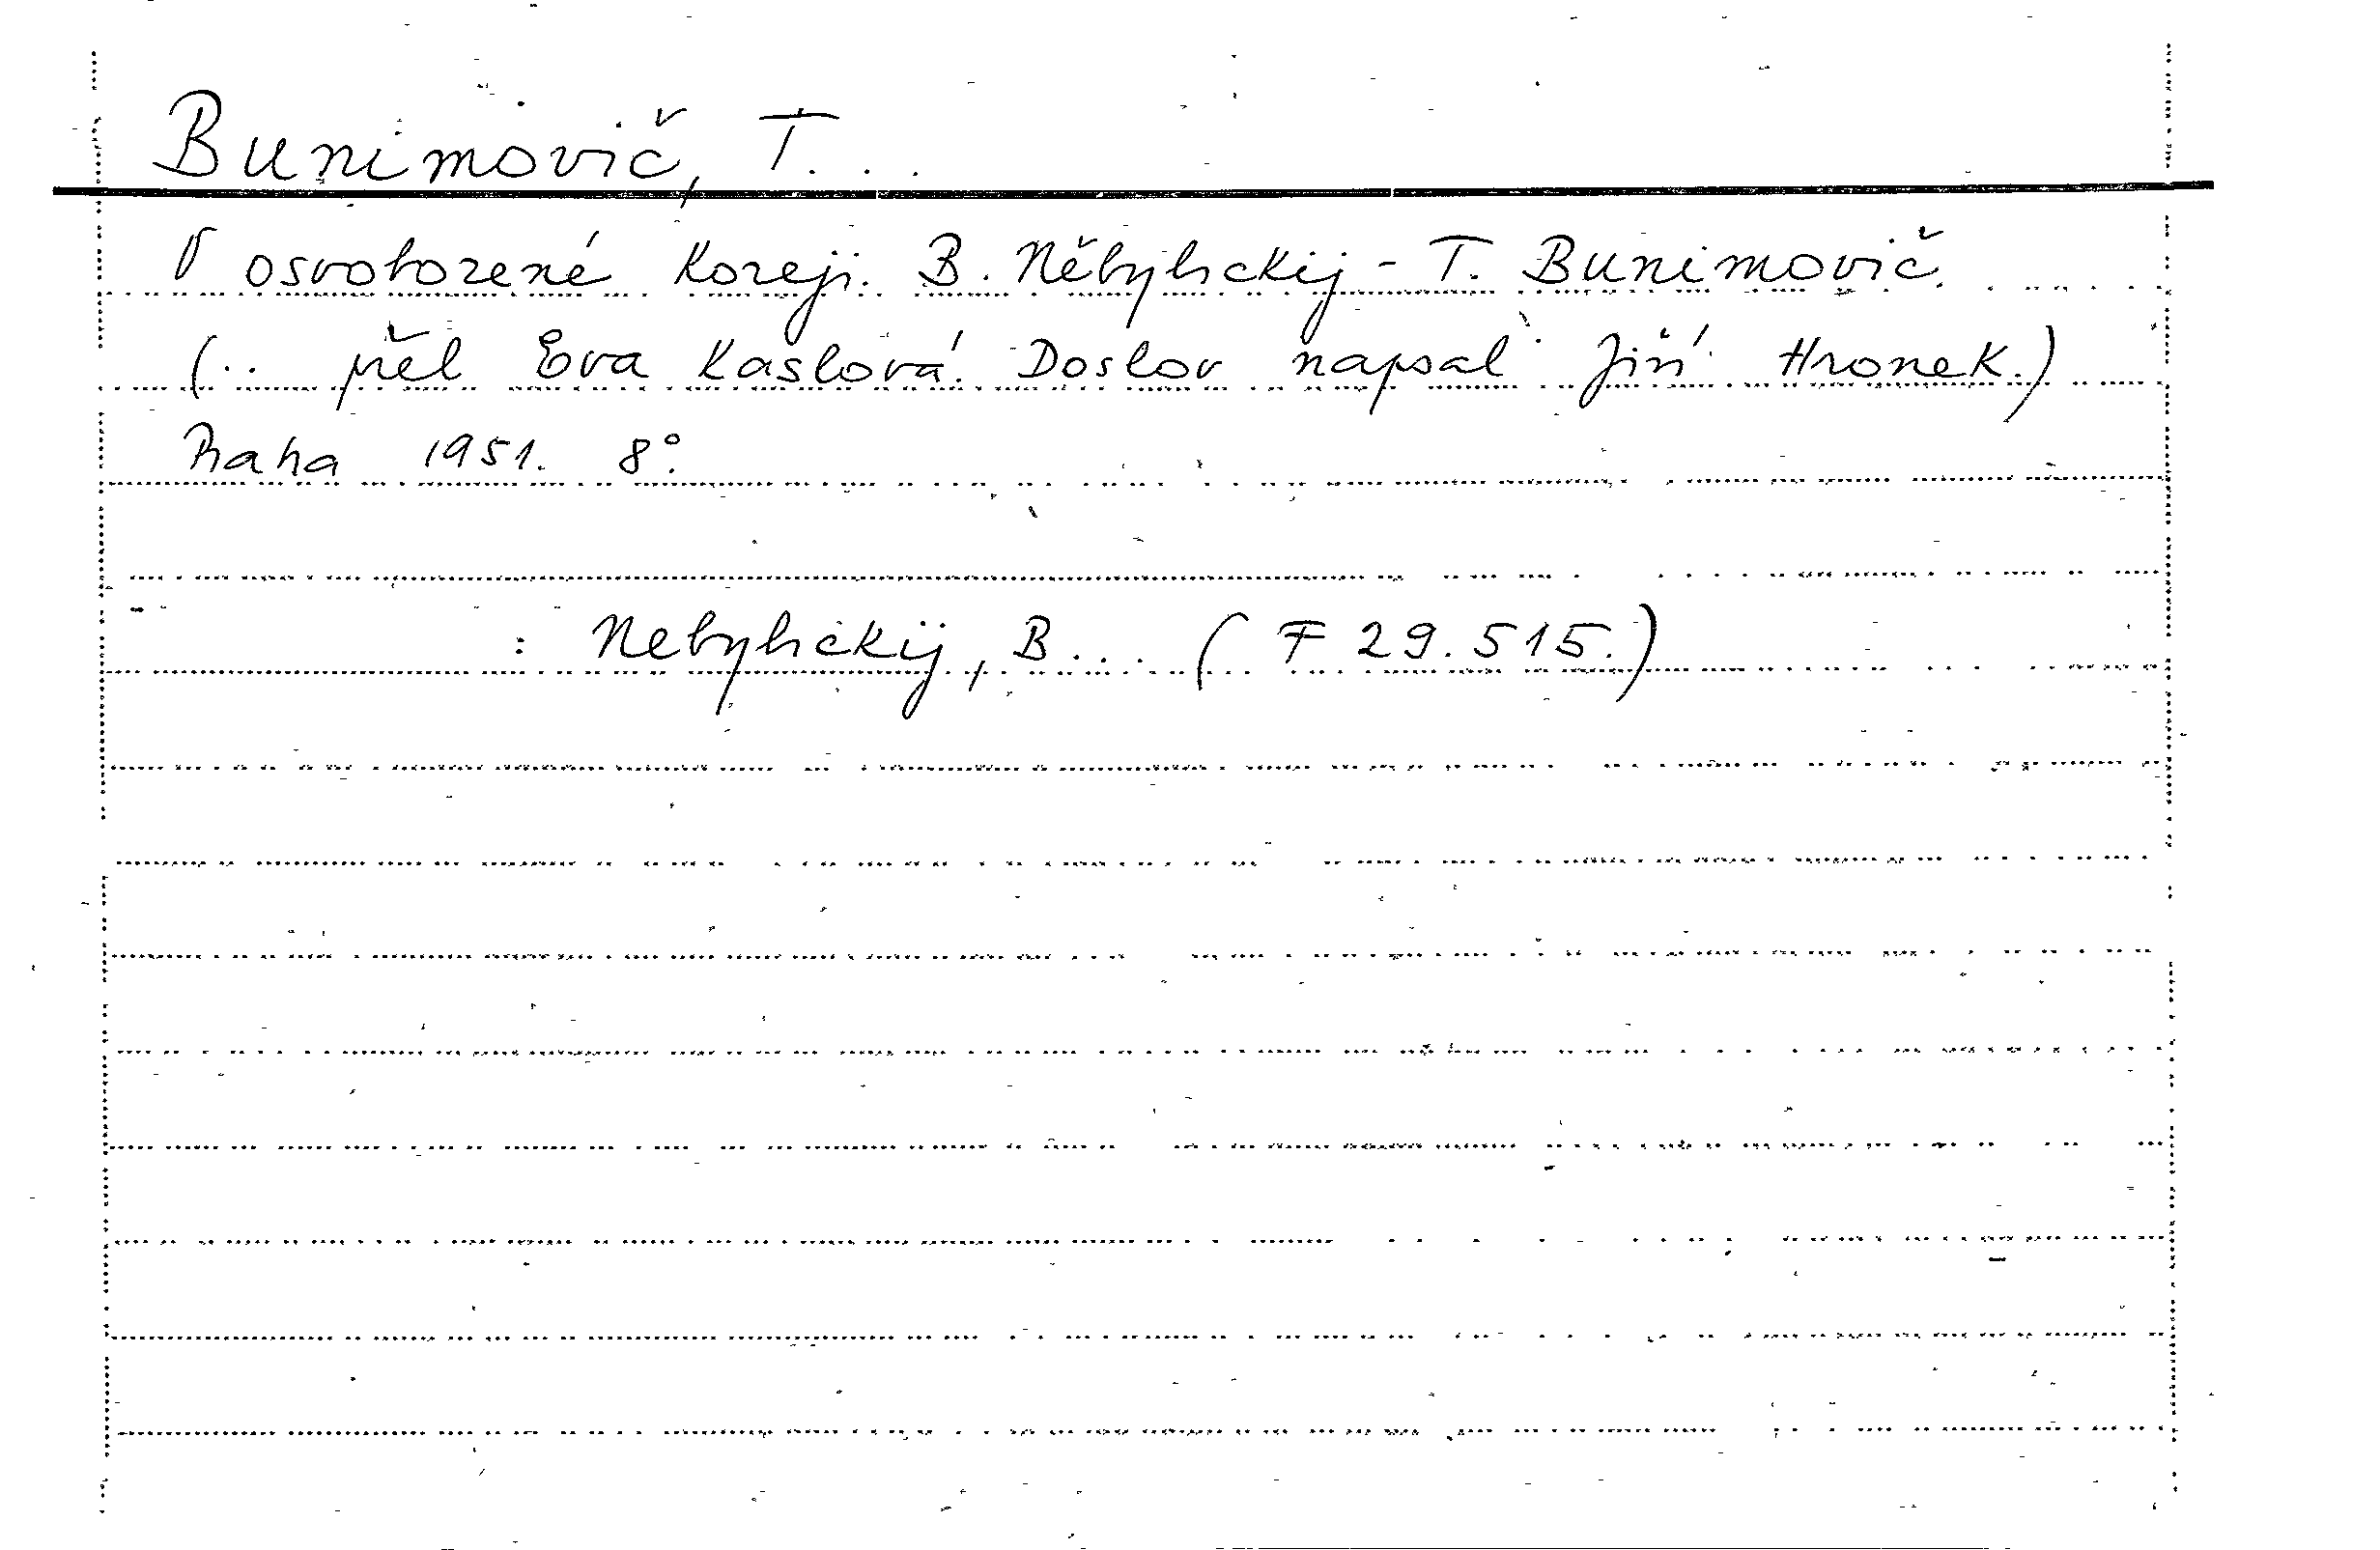 Bunimovič, T...
V osvobozené Koreji. B. Něbylickij - T. Bunimovič.
(.. přel Eva Kaslová. Doslov napsal Jiří Hronek.)
Praha 1951. 8°.
: Nebylickij, B... ( F 29.515.)